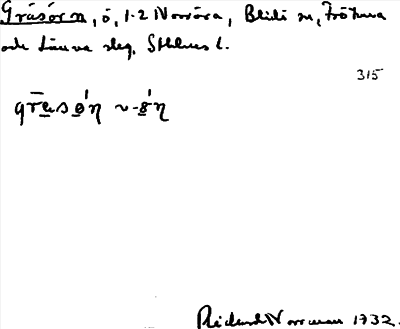 Gråsörn, ö, 1-2 Norröra, Blidö sn, Frötuna
och Länna skg, Sthlms l.
315
Richard Norrman 1932.